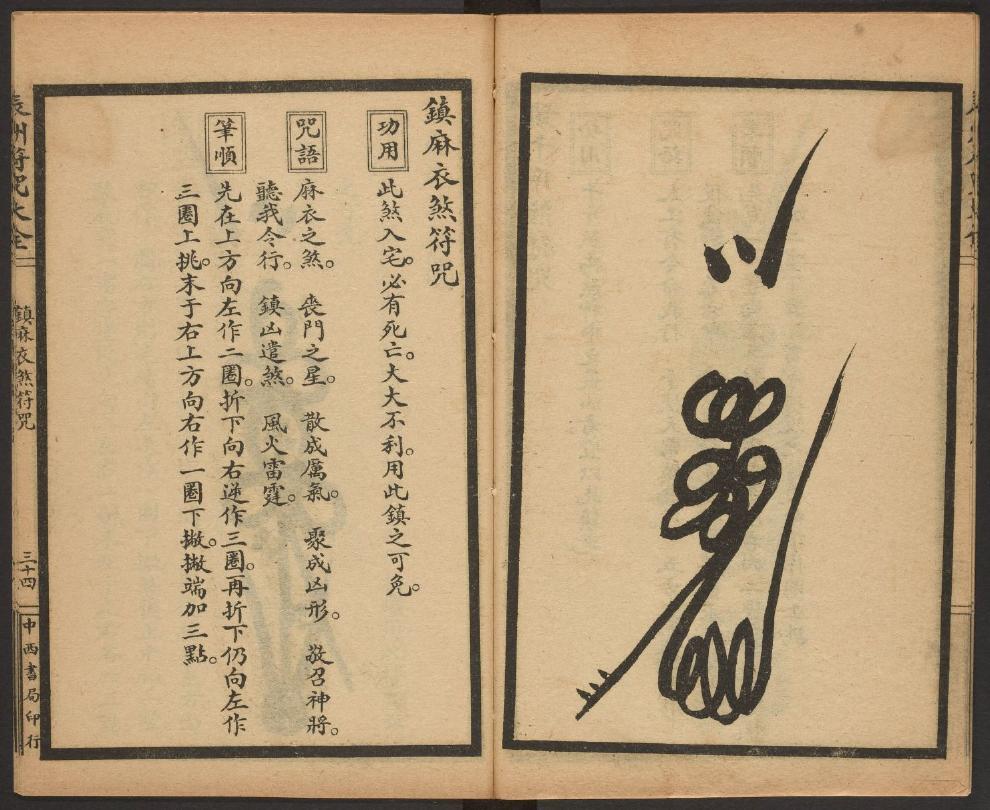 鎮麻衣煞符咒
功用
此煞入宅。必有死亡。大大不利。用此鎮之可免。
咒語
麻衣之煞。 喪門之星。 散成厲氣。 聚成凶形。 敬召神將。
聽我令行。 鎮凶遣煞。 風火雷霆。
筆順
先在上方向左作二圈。折下向右逆作三圈。再折下仍向左作
三圈上挑。末于右上方向右作一圈下撇。撇端加三點。
辰州符咒大全
鎮麻衣煞符咒
三十四
中西書局印行